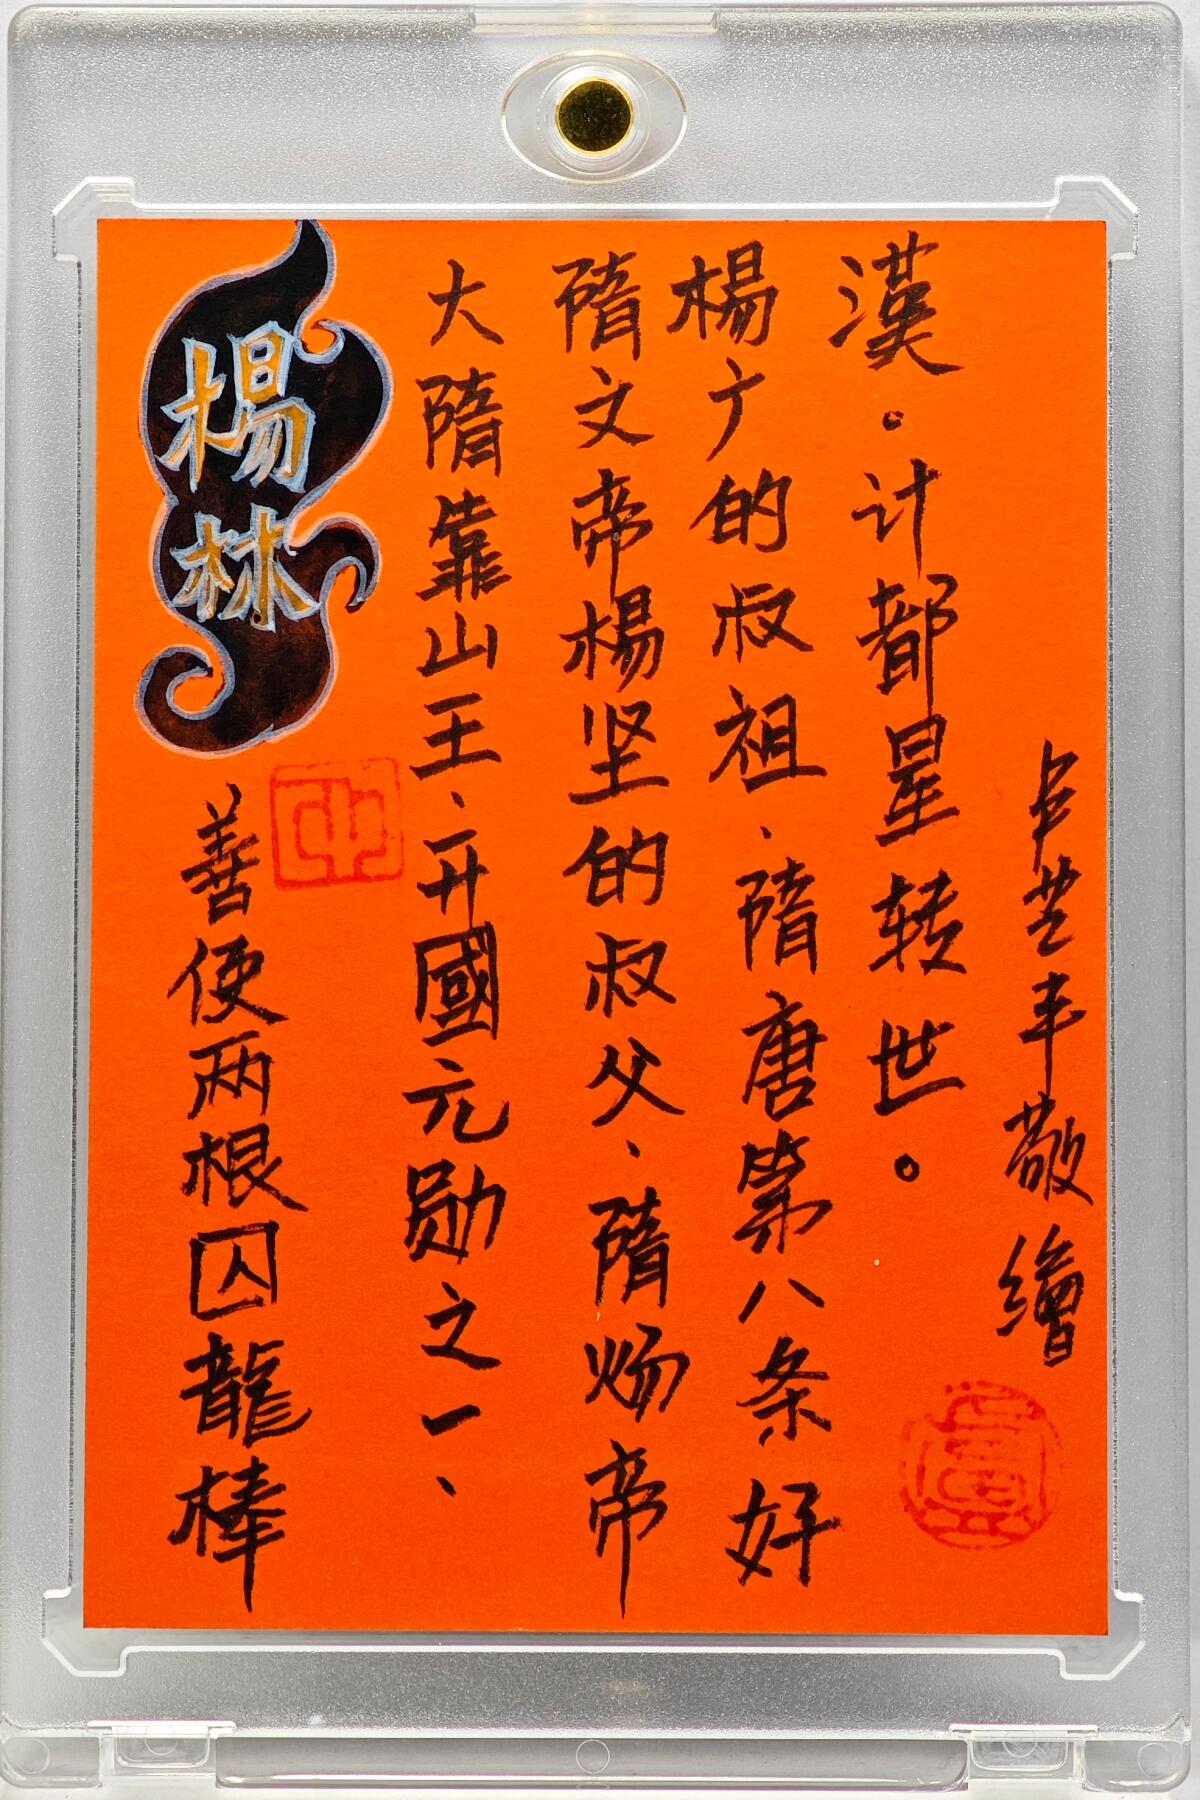 楊林
善使两根囚龍棒
大隋靠山王、开國元勋之一、
隋文帝楊坚的叔父、隋炀帝
楊广的叔祖、隋唐第八条好
漢。计都星转世。
卢芝丰敬繪